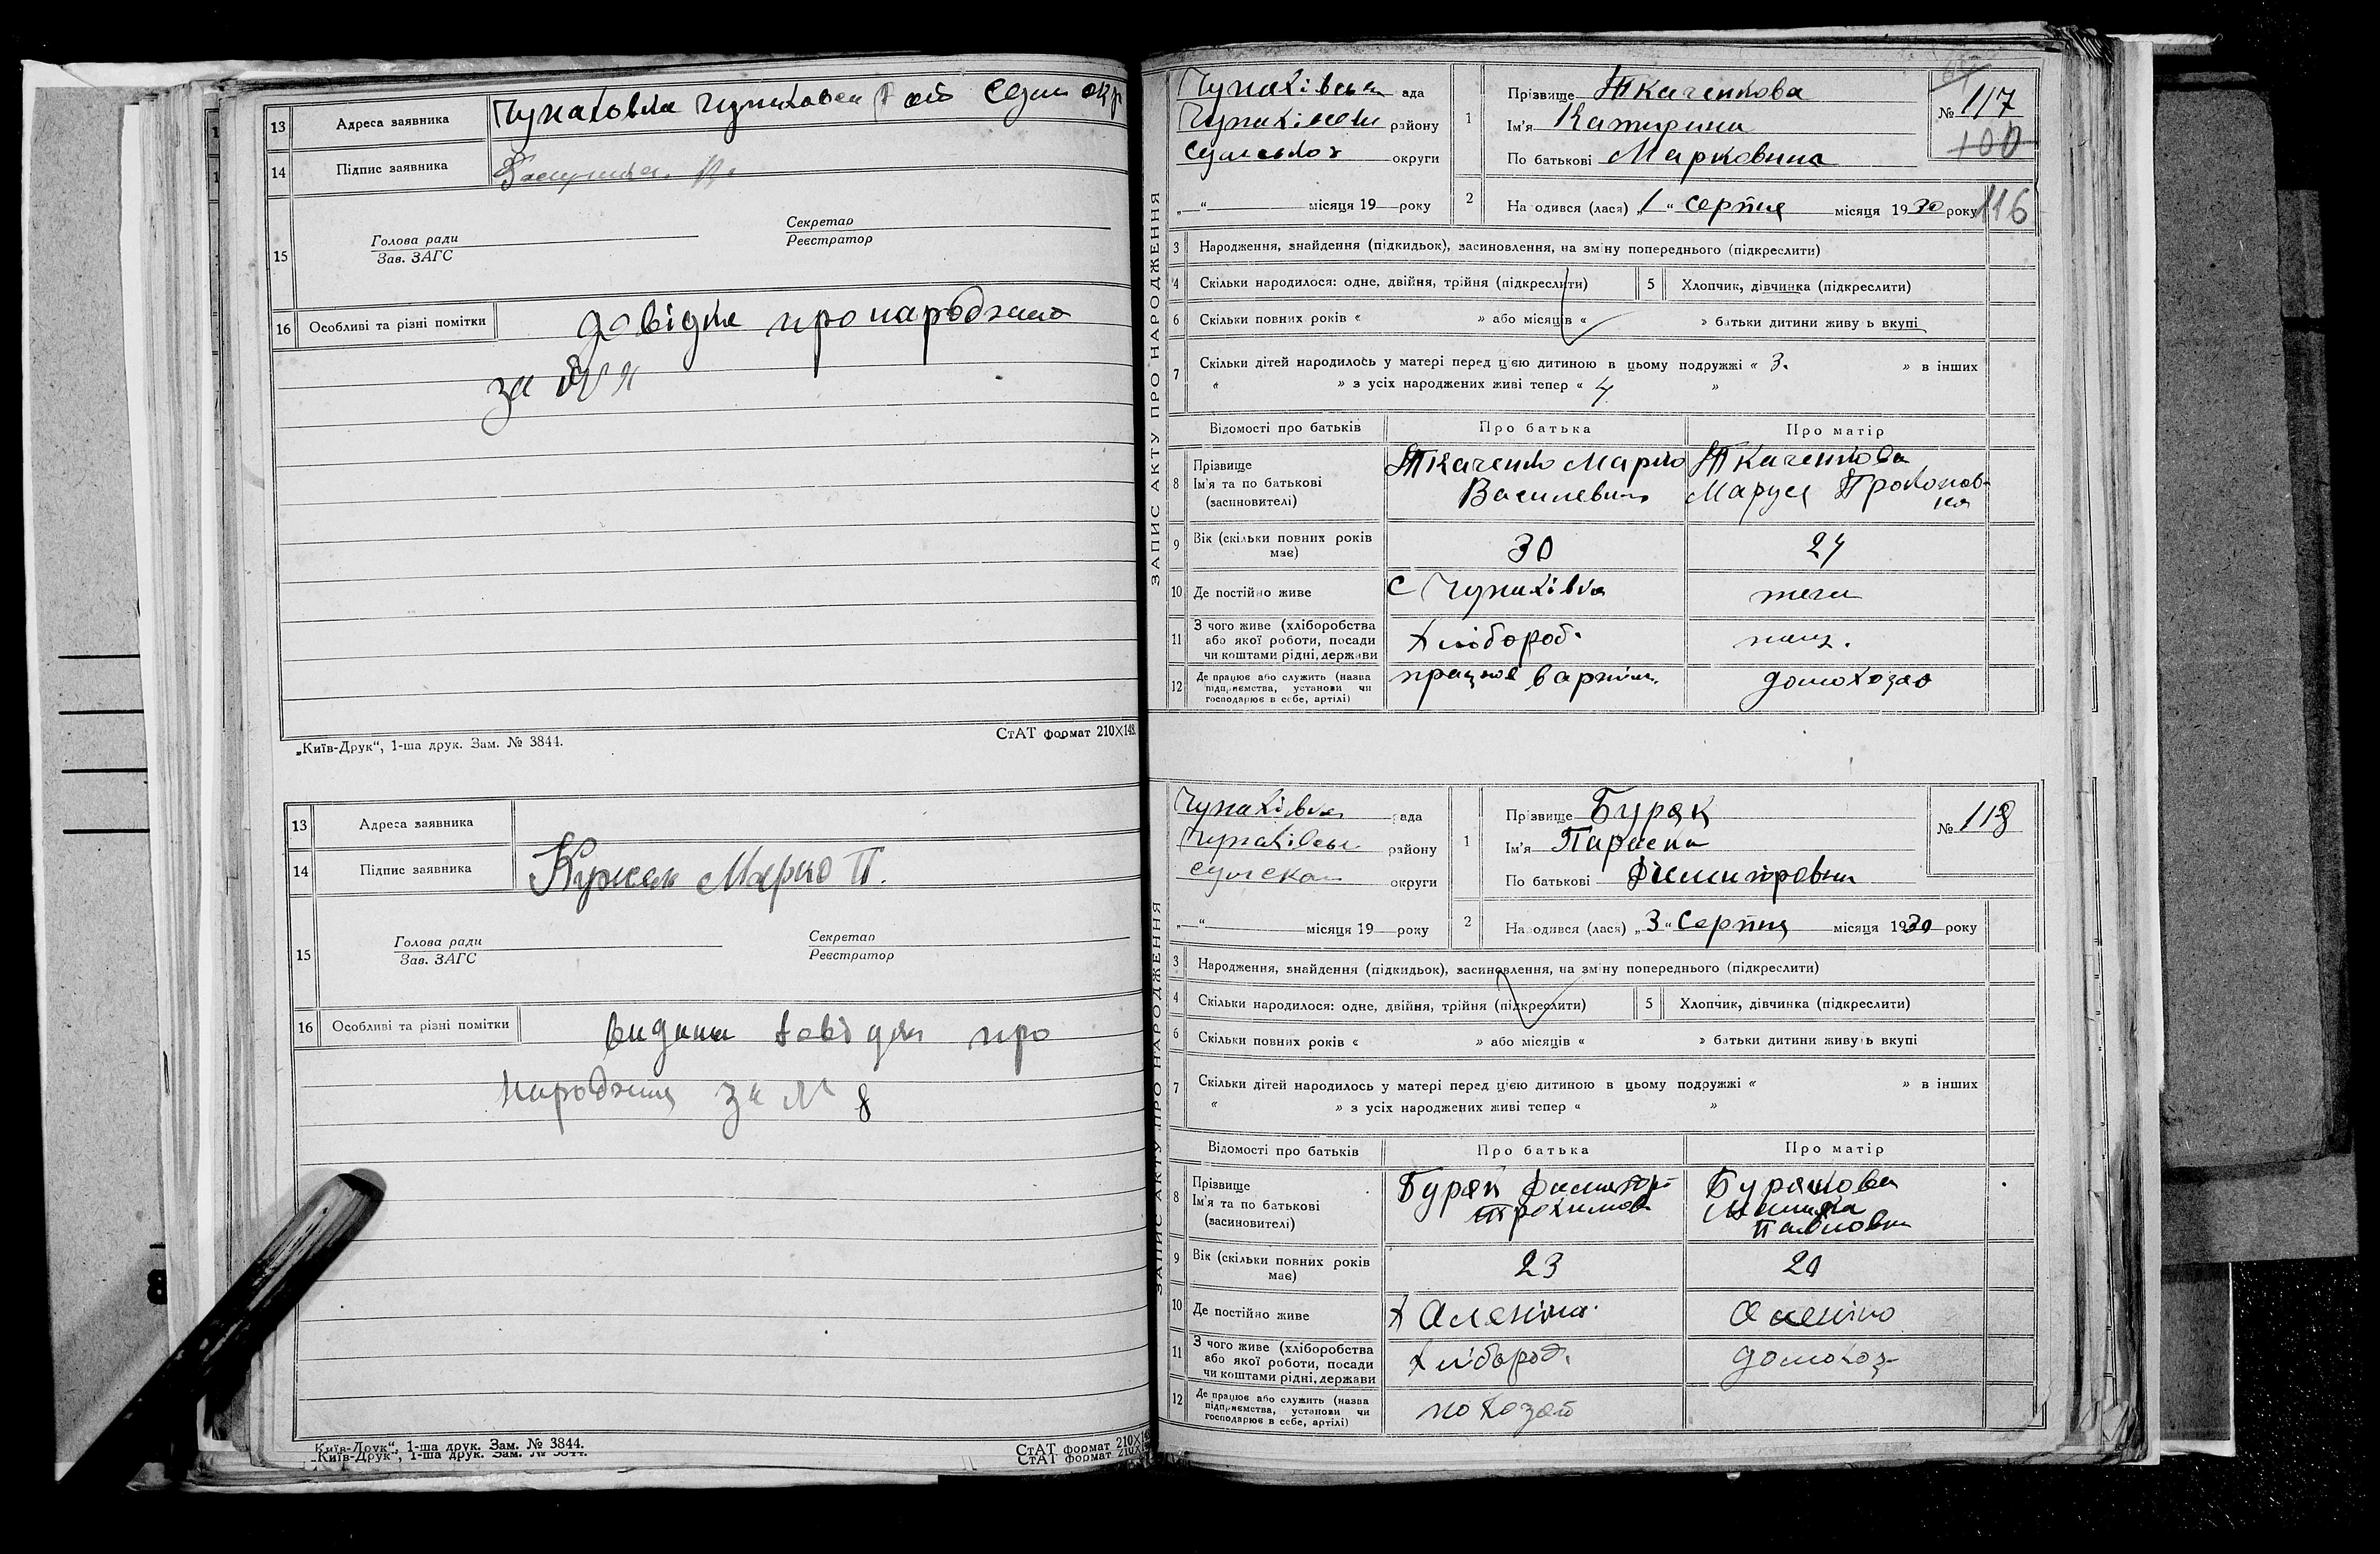 13 Адреса заявника Чупаховка Чупаховск Сум окр
14 Підпис заявника
15 Голова ради Секретар
Зав. ЗАГС Реєстратор
16 Особливі та різні помітки довідка про народжен
за №
„Київ-Друк“, 1-ша друк. Зам. № 3844. СтАТ формат 210×148
13 Адреса заявника
14 Підпис заявника Марко П.
15 Голова ради Секретар
Зав. ЗАГС Реєстратор
16 Особливі та різні помітки видана довідка про
народження за № 8
„Київ-Друк“, 1-ша друк. Зам. № 3844. СтАТ формат 210×148
„Київ-Друк“, 1-ша друк. Зам. № 3844. СтАТ формат 210×
ЗАПИС АКТУ ПРО НАРОДЖЕННЯ
Чупахівська рада
Чупахівськ району
Сумської округи
„—“ місяця 19 року
1 Прізвище Ткаченкова
Ім'я Катирина
По батькові Марковна
№ 117
100
2 Народився (лася) „1“ серпня місяця 1930 року 116
3 Народження, знайдення (підкидьок), засиновлення, на зміну попереднього (підкреслити)
4 Скільки народилося: одне, двійня, трійня (підкреслити) 5 Хлопчик, дівчинка (підкреслити)
6 Скільки повних років « » або місяців « » батьки дитини живуть вкупі
7 Скільки дітей народилось у матері перед цією дитиною в цьому подружжі « 3. » в інших
« » з усіх народжених живі тепер « 4 »
Відомості про батьків Про батька Про матір
8 Прізвище Ім'я та по батькові (засиновителі) Ткаченко Марко Василевич Ткаченкова Маруся Прокоповна
9 Вік (скільки повних років має) 30 24
10 Де постійно живе с Чупахівка теж
11 З чого живе (хліборобства або якої роботи, посади чи коштами рідні, держави Хлібороб.
12 Де працює або служить (назва підприємства, установи чи господарює в себе, артілі) працює в артіли домохоз
ЗАПИС АКТУ ПРО НАРОДЖЕННЯ
Чупахівка рада
Чупахівськ району
Сумской округи
„—“ місяця 19 року
1 Прізвище Буряк
Ім'я Параска
По батькові
№ 118
2 Народився (лася) „3“ Серпня місяця 1930 року
3 Народження, знайдення (підкидьок), засиновлення, на зміну попереднього (підкреслити)
4 Скільки народилося: одне, двійня, трійня (підкреслити) 5 Хлопчик, дівчинка (підкреслити)
6 Скільки повних років « » або місяців « » батьки дитини живуть вкупі
7 Скільки дітей народилось у матері перед цією дитиною в цьому подружжі « » в інших
« » з усіх народжених живі тепер « »
Відомості про батьків Про батька Про матір
8 Прізвище Ім'я та по батькові (засиновителі) Буряк Трохимов Бурякова Павловна
9 Вік (скільки повних років має) 23 20
10 Де постійно живе х Оленіна Оленіно
11 З чого живе (хліборобства або якої роботи, посади чи коштами рідні, держави Хлібороб. домохоз
12 Де працює або служить (назва підприємства, установи чи господарює в себе, артілі)